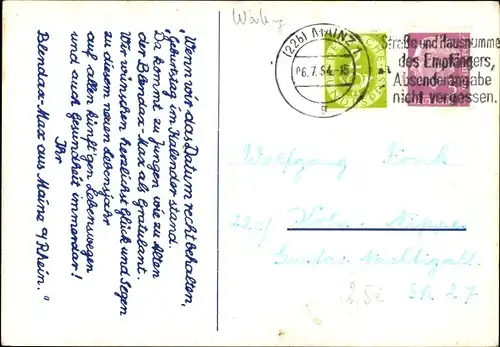 "Wenn wir das Datum recht behalten,
"Geburtstag im Kalender stand.
Da kommt zu Jungen wie zu Alten
der Blendax-Max als Gratulant.
Wir wünschen herzlichst Glück und Segen
zu diesem neuen Lebensjahr
auf allen künft'gen Lebenswegen
und auch Gesundheit immerdar!
Ihr
Blendax-Max aus Mainz a/Rhein."
(22b) MAINZ 1
06.7.54.-15
g
Straße und Hausnummer
des Empfängers,
Absenderangabe
nicht vergessen.
Wolfgang
22c/ Köln-Nippes
Gustav Nachtigall
Str. 27